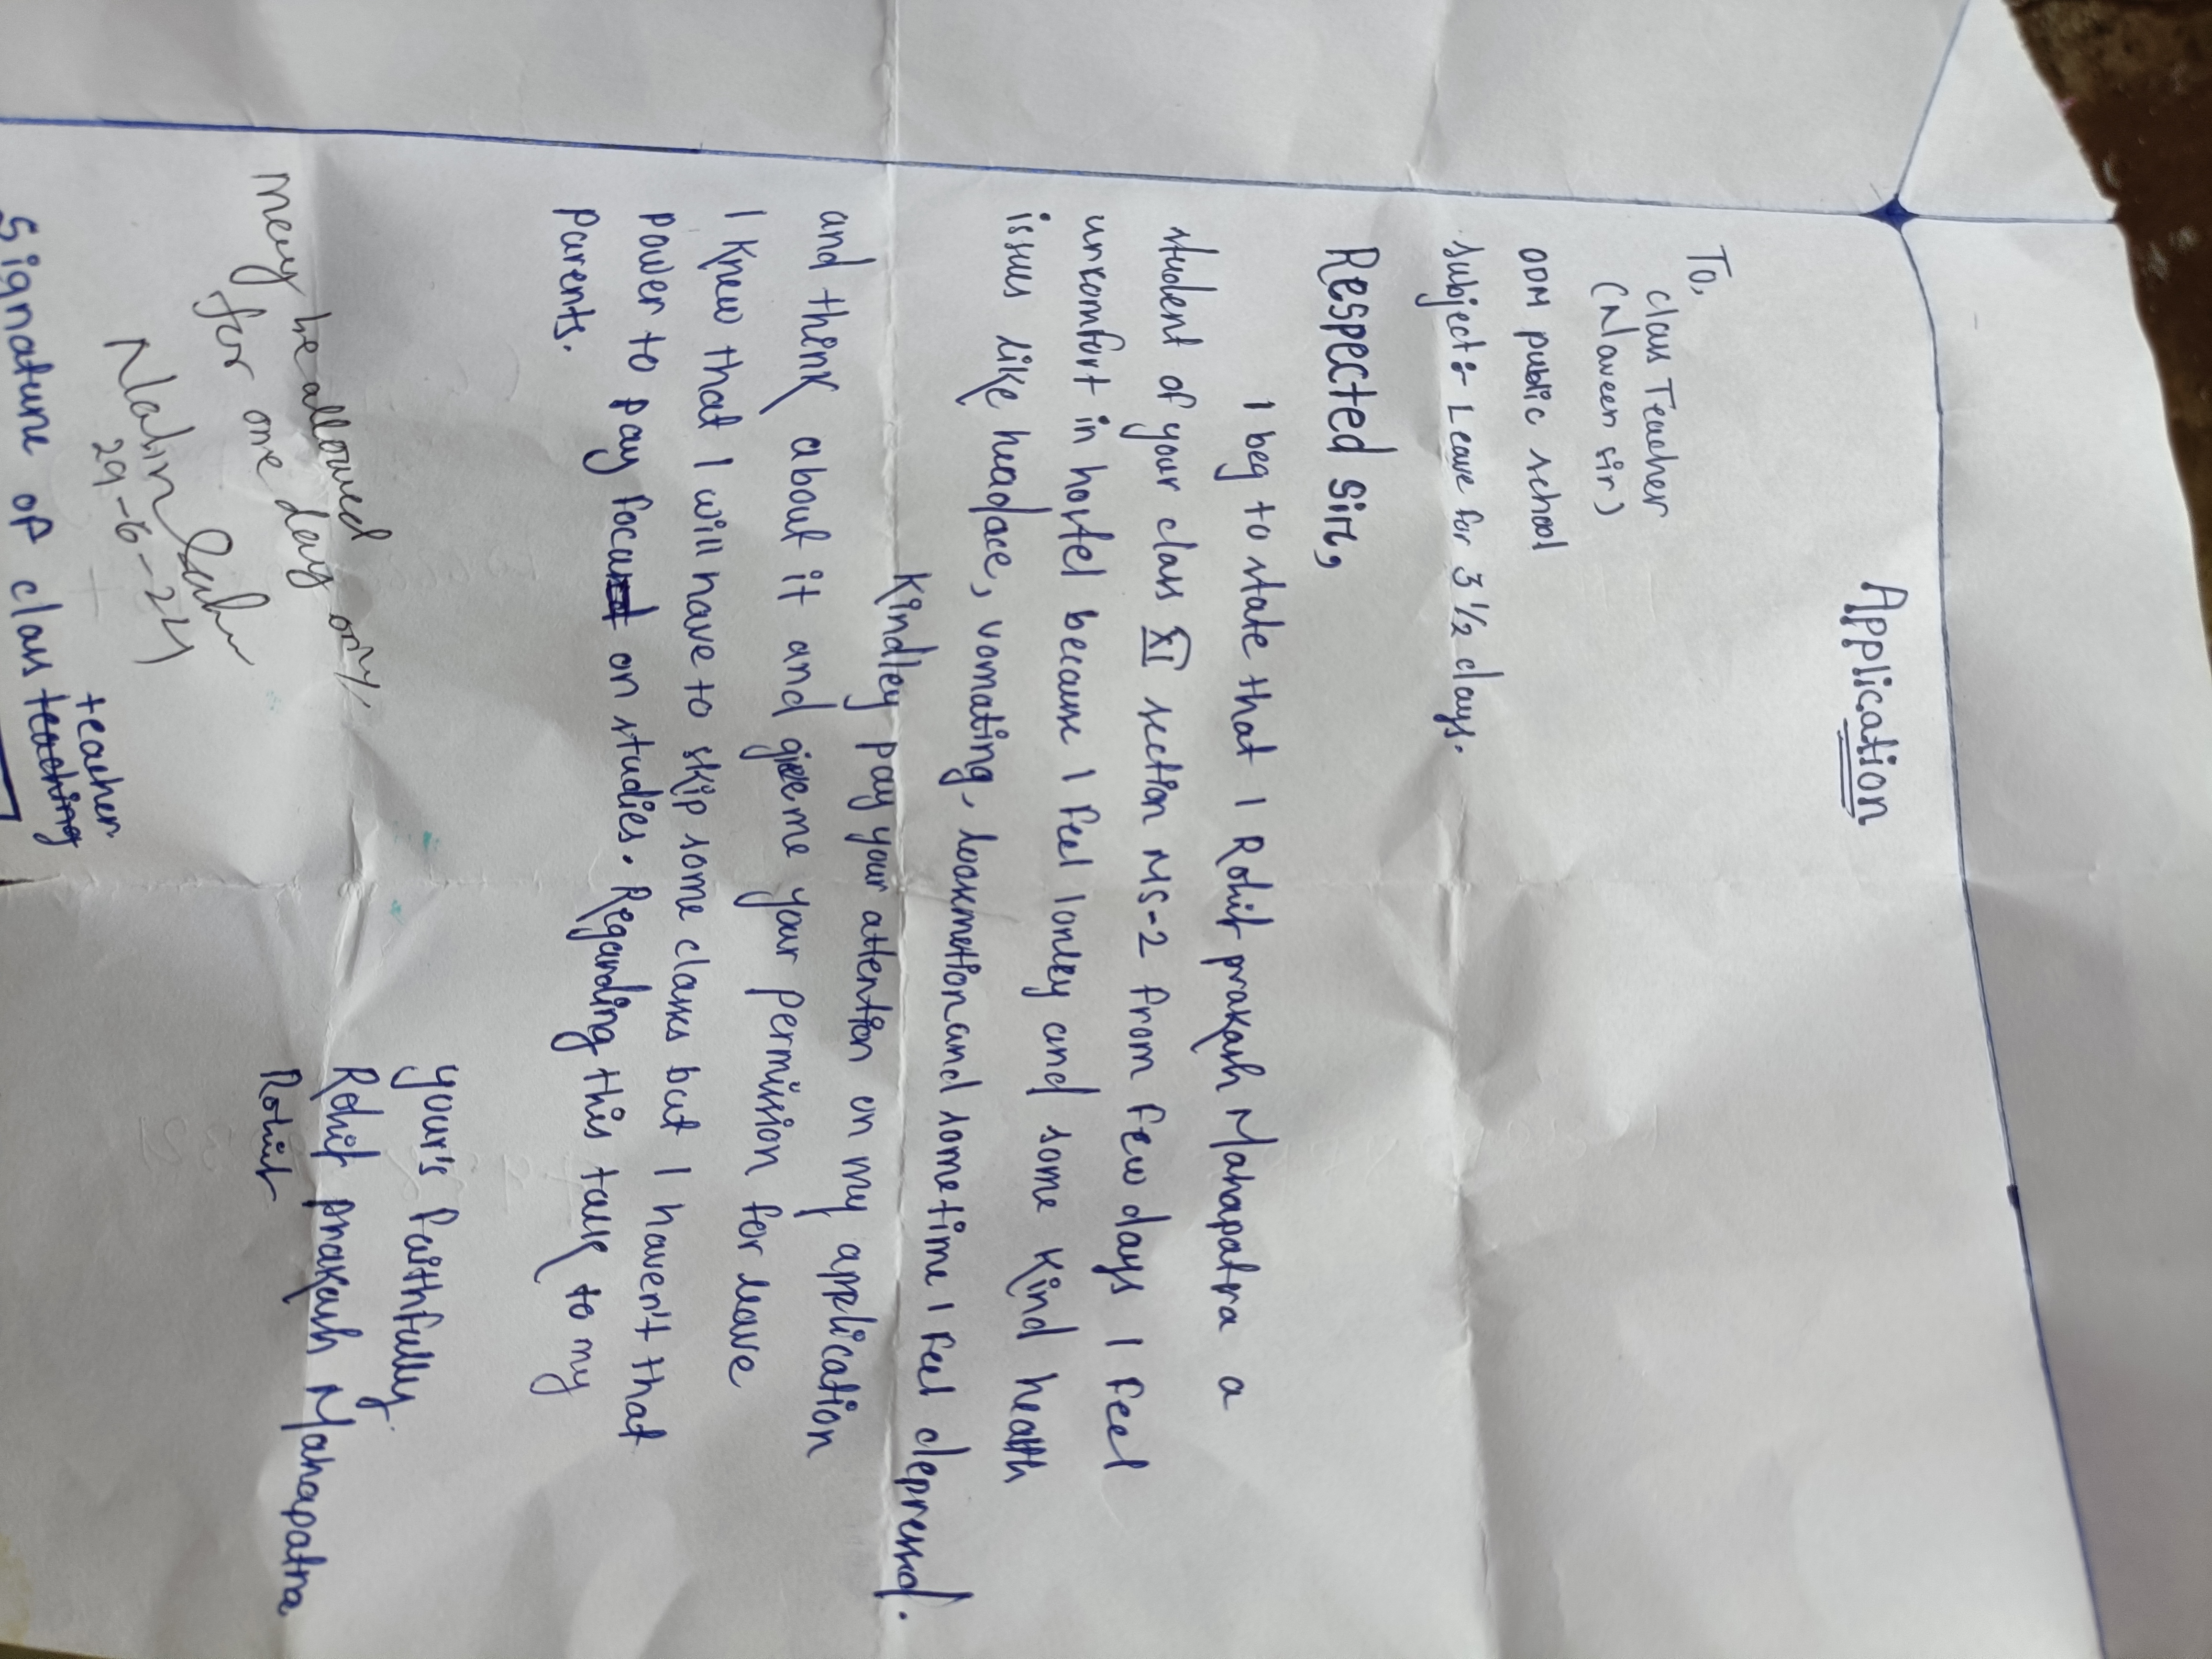 Application
To,
class Teacher
(Naveen sir)
ODM public school
subject:- Leave for 3 1/2 days.
Respected Sir,
I beg to state that I Rohit prakash Mahapatra a
student of your class XI section MS-2 from few days I feel
uncomfort in hostel because I feel lonley and some kind health
issues like headace, vomating, loosemotion and sometime I feel depressed.
Kindley pay your attention on my application
and think about it and give me your permission for leave
I knew that I will have to skip some class but I haven't that
power to pay focus on studies. Regarding this talk to my
parents.
your's faithfully
Rohit prakash Mahapatra
Rohit
may be allowed
for one day only
29-6-24
Signature of class teaching teacher